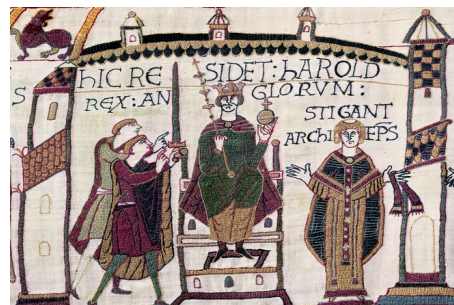 S
HIC RE SIDET: HAROLD
REX: AN GLORVM:
STIGANT
ARCHI EPS